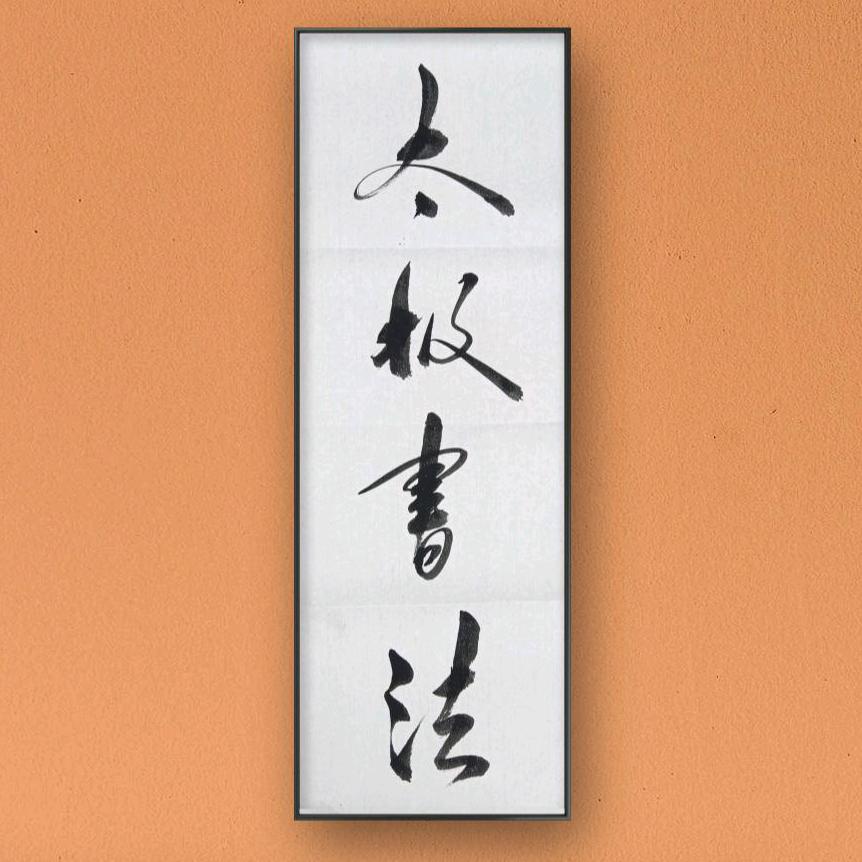 太极書法